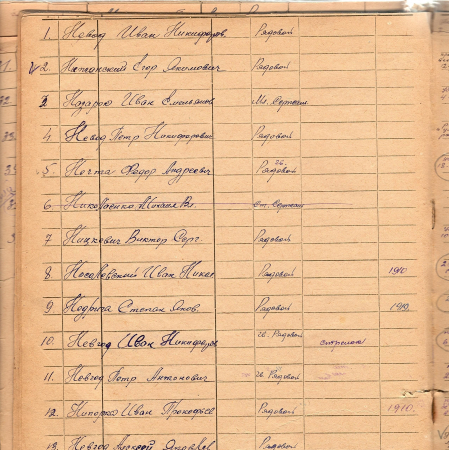 1. Невод Иван Никифоров Рядовой
2. Натанский Егор Якимович Рядовой
3 Назарою Иван Емельянов Мл. Сержант
4 Невод Петр Никифорович Рядовой
5. Нечта Федор Андреевич гв. Рядовой
6. Николаенко Михаил Вл. Ст. Сержант
7 Ницкевич Виктор Серг. Рядовой
8 Иван Никол Рядовой 1910
9 Недрыга Степан Яков. Рядовой 1910.
10. Невгод Иван Никифоров гв. Рядовой стрелок
11. Невгод Петр Антонович гв. Рядовой
12. Нипорка Иван Прокофьев Рядовой 1910.
13. Невгод Алексей Рядовой